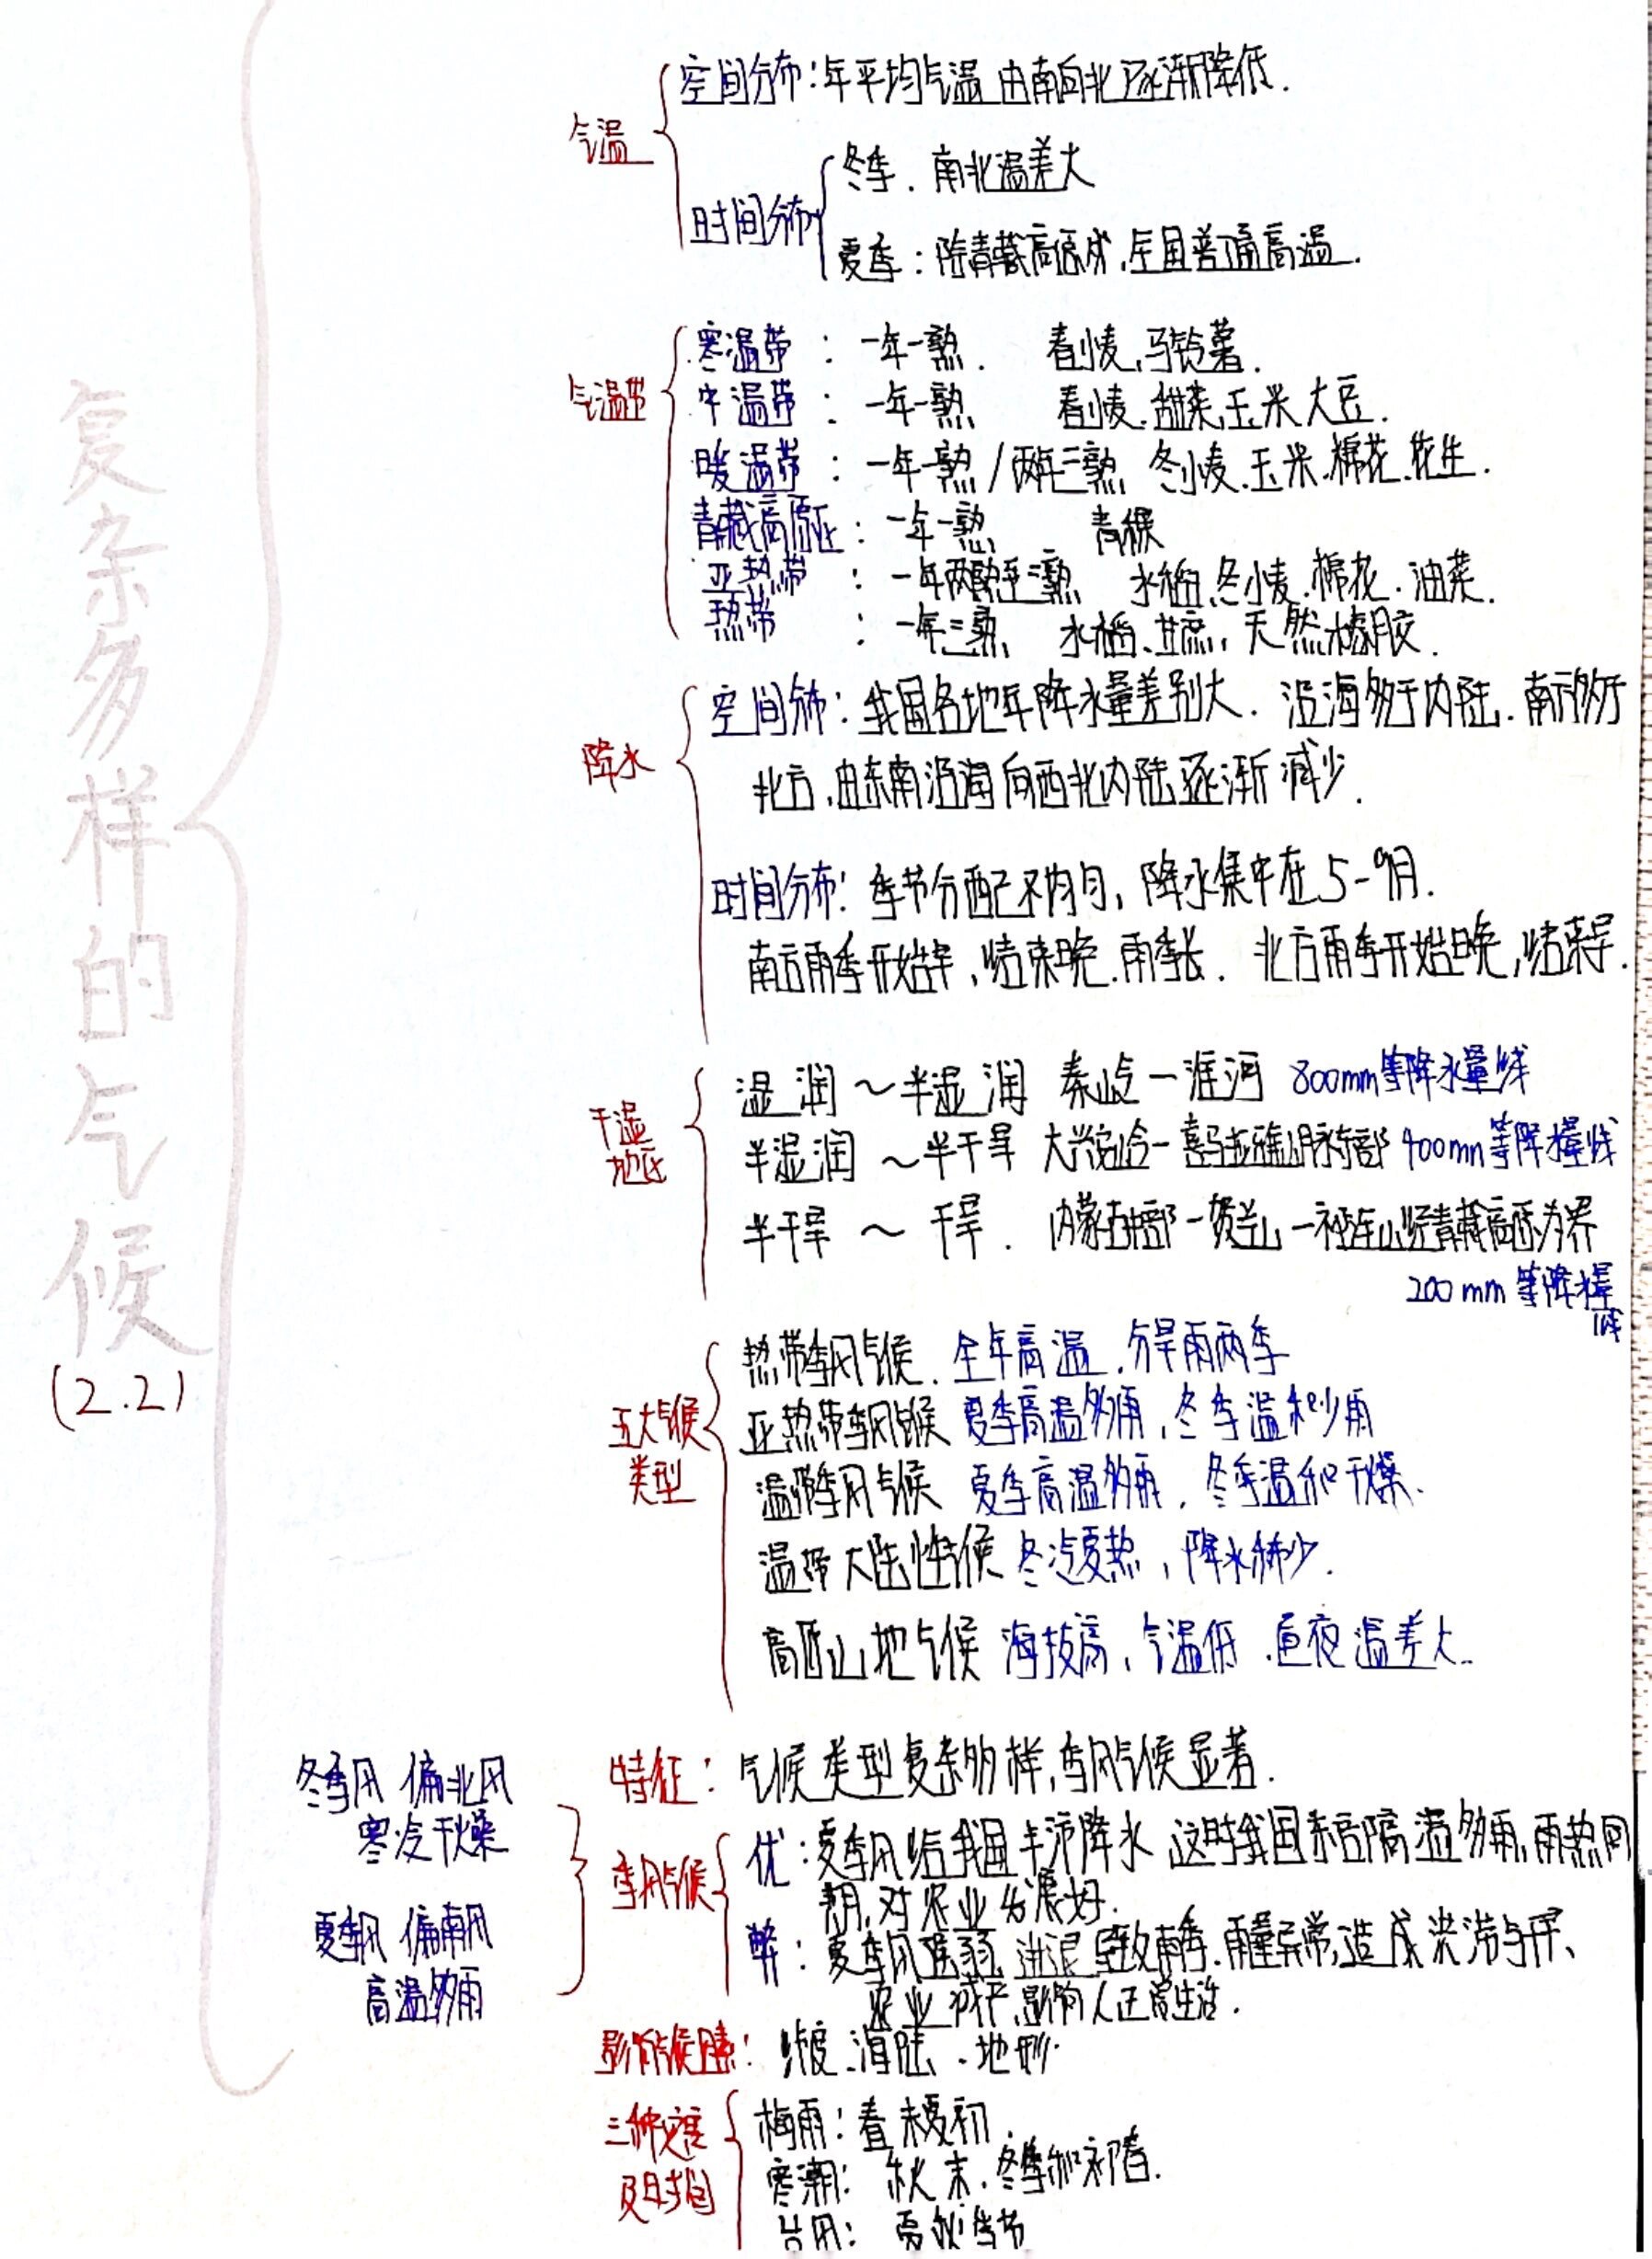 复杂多样的气候
(2.2)
气温
空间分布:年平均气温由南向北逐渐降低.
时间分布
冬季.南北温差大
夏季:除青藏高原外,全国普遍高温.
气温带
寒温带:一年一熟.春小麦,马铃薯.
中温带:一年一熟 春小麦.甜菜,玉米大豆.
暖温带:一年一熟/两年三熟 冬小麦.玉米.棉花.花生.
青藏高原区:一年一熟 青稞
亚热带:一年两熟至三熟 水稻.冬小麦.棉花.油菜.
热带:一年三熟 水稻、甘蔗,天然橡胶.
降水
空间分布:我国各地年降水量差别大.沿海多于内陆.南方多于
北方,由东南沿海向西北内陆逐渐减少.
时间分布:季节分配不均匀,降水集中在5-9月.
南方雨季开始早,结束晚.雨季长.北方雨季开始晚,结束早.
干湿
地区
湿润~半湿润 秦岭一淮河 800mm等降水量线
半湿润~半干旱 大兴安岭一喜马拉雅山脉东部 400mm等降水量线
半干旱~干旱.内蒙古中部一贺兰山一祁连山至青藏高原为界
200mm等降水量
线
五大气候
类型
热带季风气候.全年高温.分旱雨两季
亚热带季风气候 夏季高温多雨,冬季温和少雨
温带季风气候 夏季高温多雨,冬季温和干燥.
温带大陆性气候 冬冷夏热,降水稀少.
高原山地气候 海拔高,气温低.昼夜温差大.
特征:气候类型复杂多样,季风气候显著.
冬季风 偏北风
寒冷干燥
夏季风 偏南风
高温多雨
季风气候
优:夏季风给我国丰沛降水 这时我国东部高温多雨,雨热同
期,对农业发展好.
弊:夏季风强弱,进退导致雨季.雨量异常,造成洪涝与旱、
农业减产,影响人正常生活.
影响气候因素:纬度.海陆.地形.
三种灾害
及时间
梅雨:春末夏初
寒潮:秋末.冬季和初春.
台风:夏秋季节